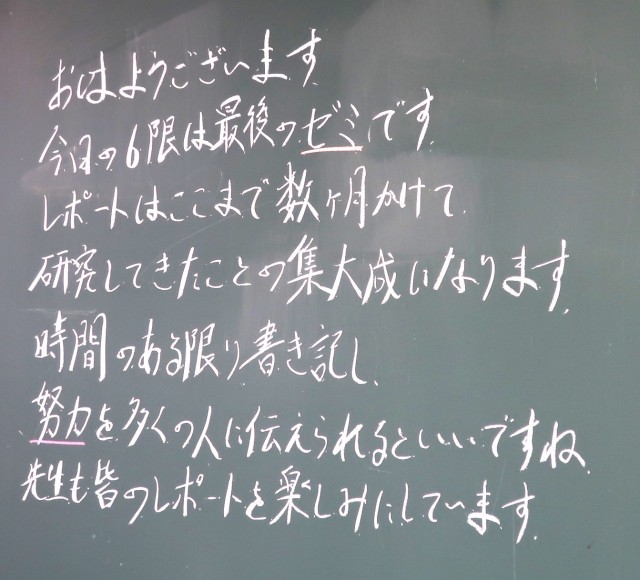 おはようございます
今日の6限は最後のゼミです
レポートはここまで数ヶ月かけて
研究してきたことの集大成になります。
時間のある限り書き記し、
努力を多くの人に伝えられるといいですね
先生も皆のレポートを楽しみにしています。